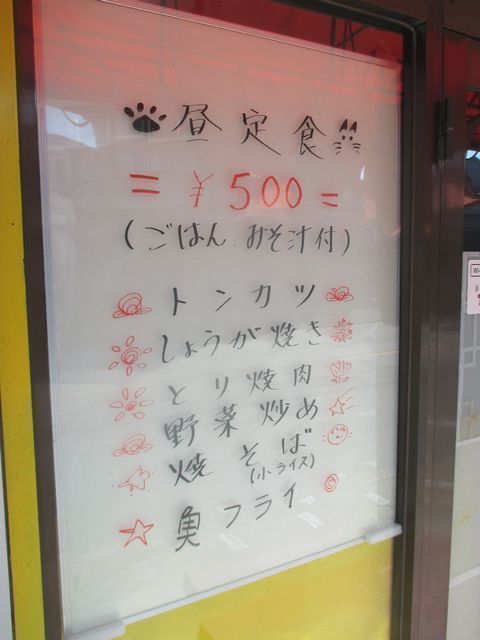 昼定食
= ¥500 =
(ごはん.みそ汁付)
トンカツ
しょうが焼き
とり焼肉
野菜炒め
焼そば
(小ライス)
魚フライ